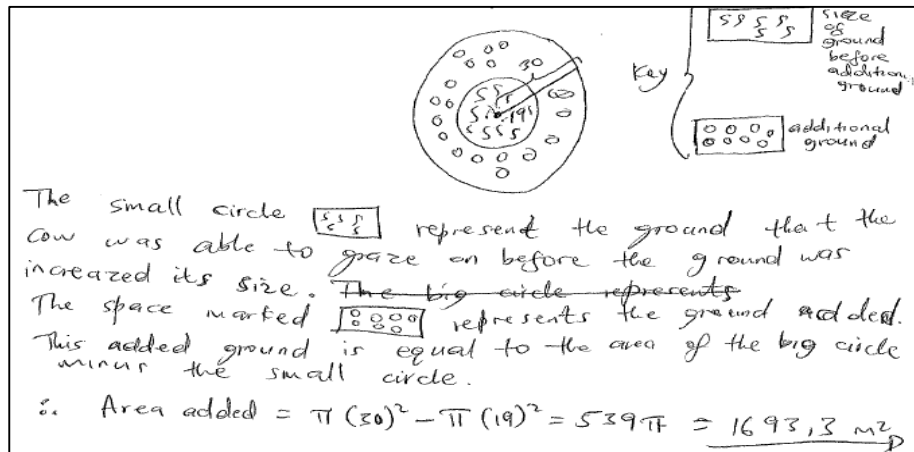 30
19
Key
size
of
ground
before
addition
ground
additional
ground
The small circle represent the ground that the
cow was able to graze on before the ground was
increazed its size. The big circle represents
The space marked represents the ground added.
This added ground is equal to the area of the big circle
minus the small circle.
∴ Area added = π(30)² − π(19)² = 539π = 1693,3 m²